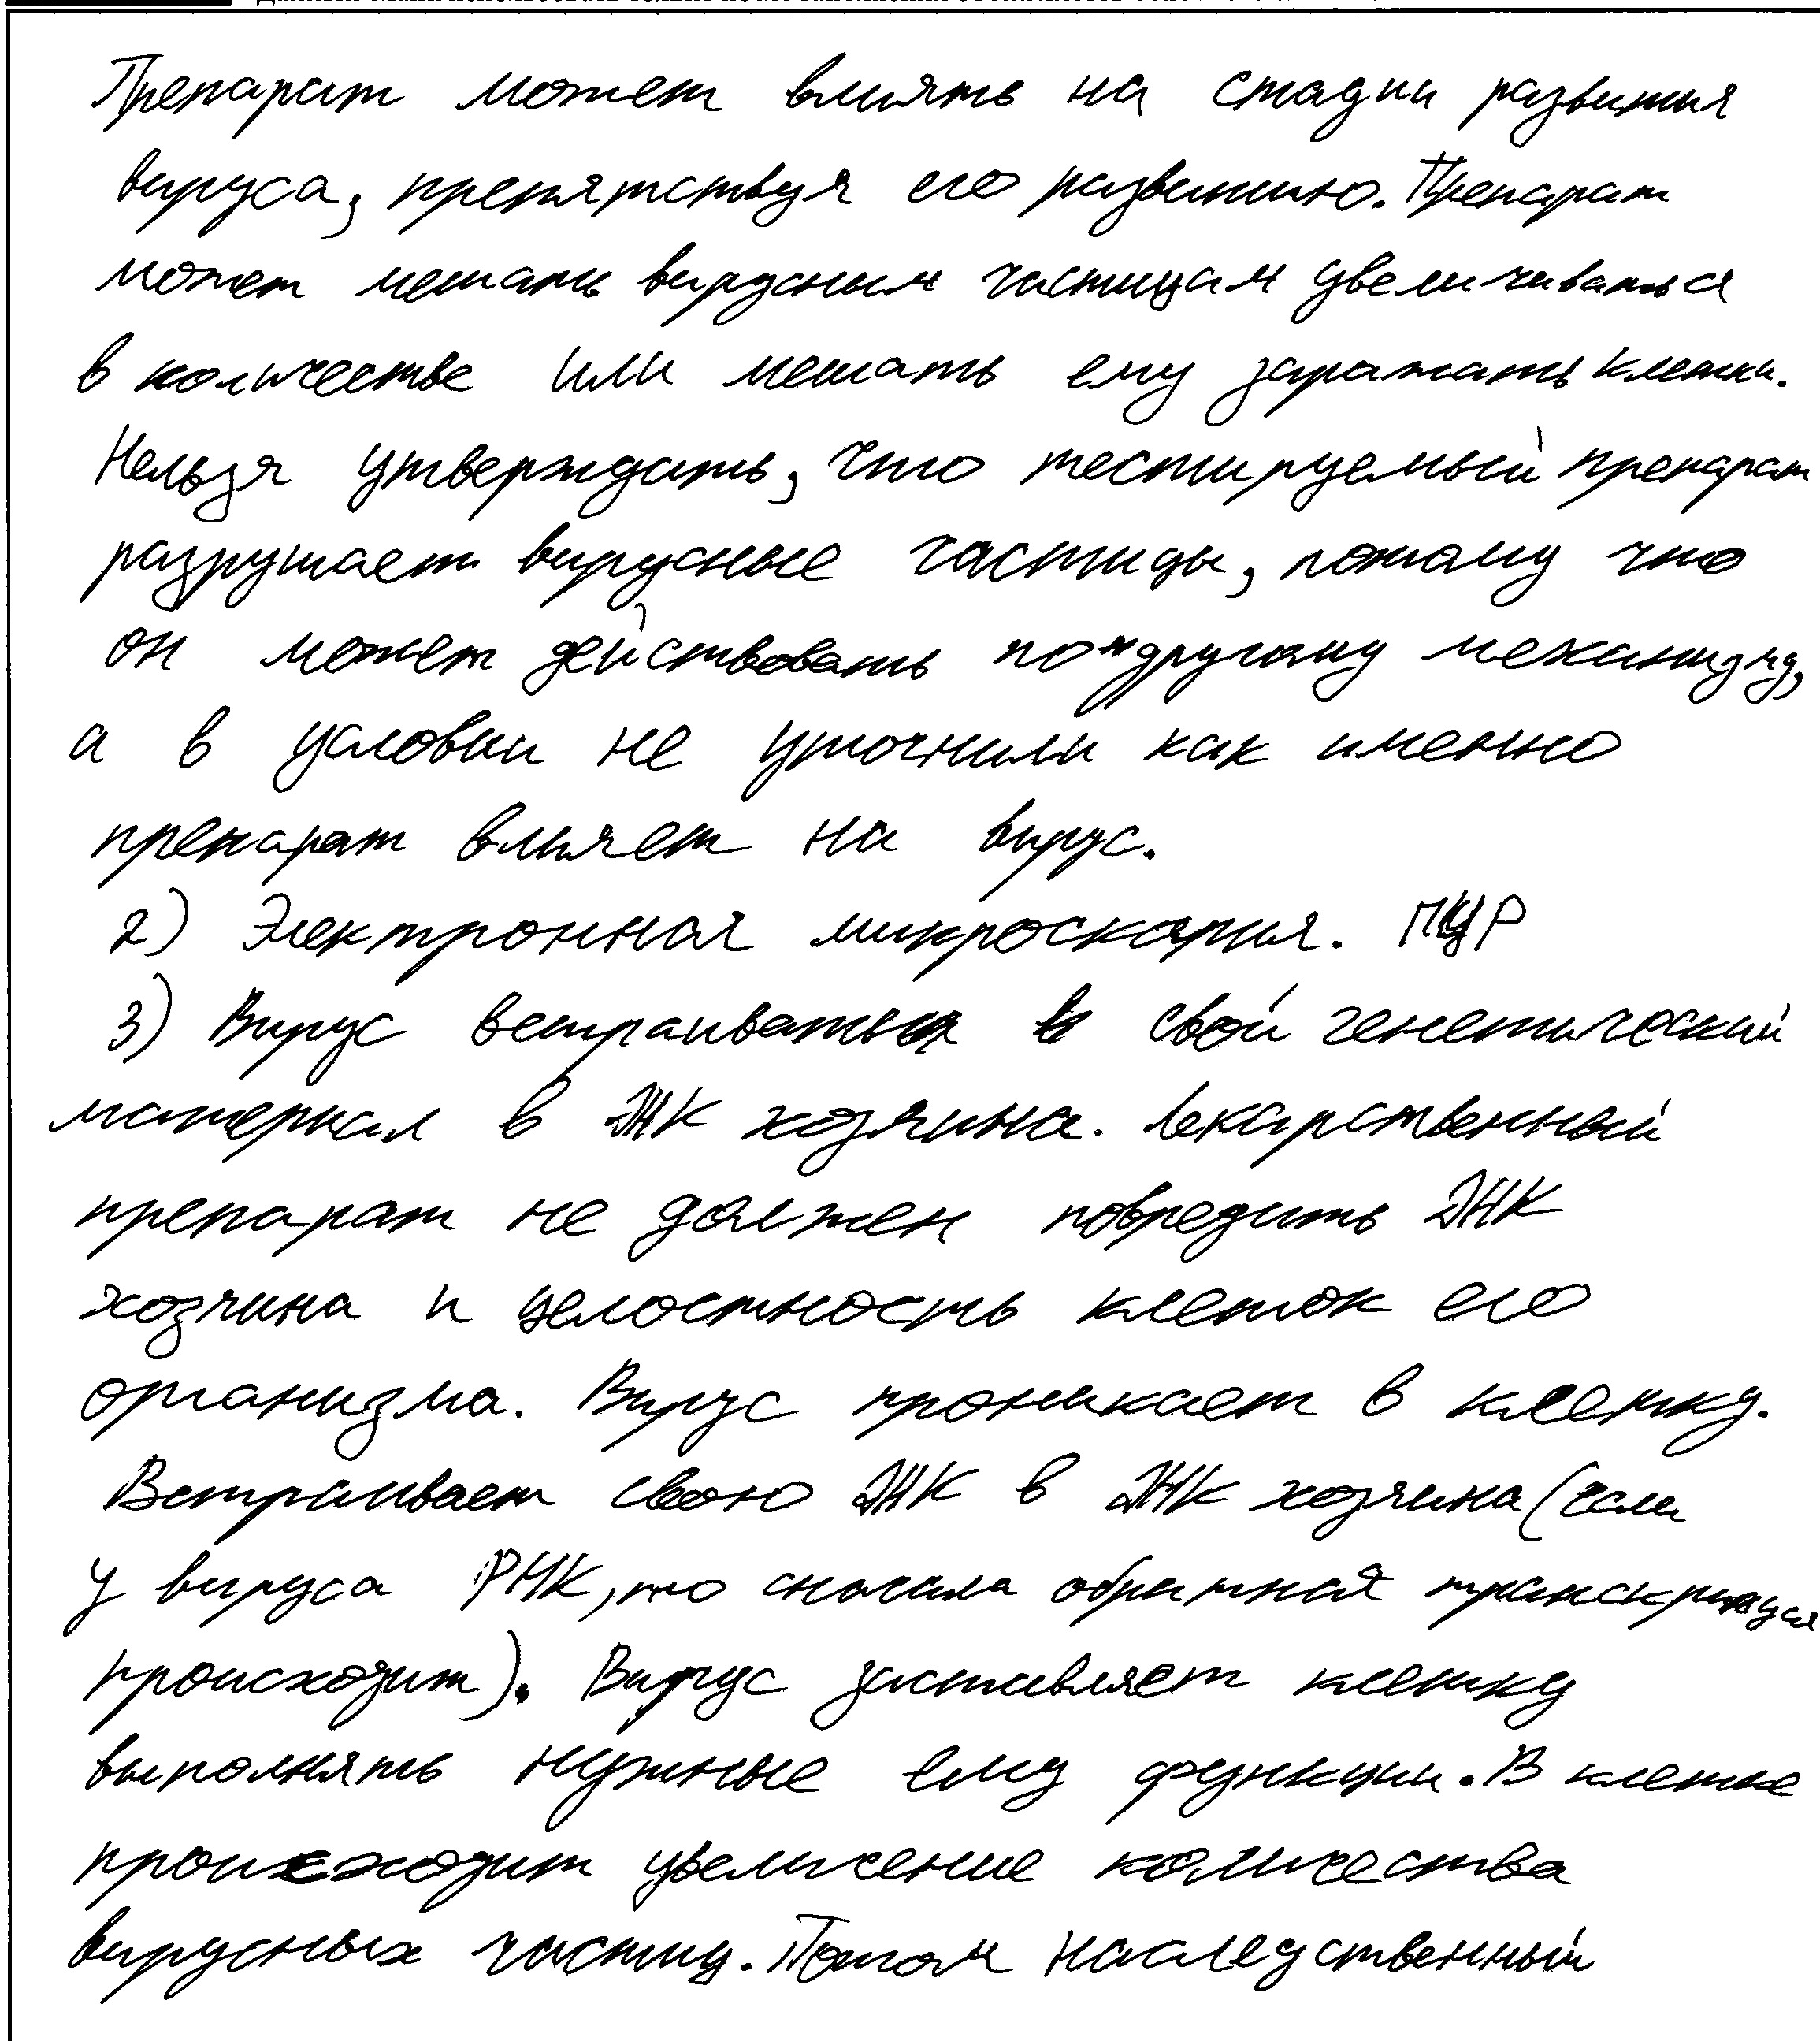 Препарат может влиять на стадии развития
вируса, препятствуя его развитию. Препарат
может мешать вирусным частицам увеличиваться
в количестве или мешать ему заражать клетки.
Нельзя утверждать, что тестируемый препарат
разрушает вирусные частицы, потому что
он может действовать по другому механизму,
а в условии не уточнили как именно
препарат влияет на вирус.
2) Электронная микроскопия. ПЦР
3) Вирус встраивает свой генетический
материал в ДНК хозяина. Лекарственный
препарат не должен повредить ДНК
хозяина и целостность клеток его
организма. Вирус проникает в клетку.
Встраивает свою ДНК в ДНК хозяина (если
у вируса РНК, то сначала обратная транскрипция
происходит). Вирус заставляет клетку
выполнять нужные ему функции. В клетке
происходит увеличение количества
вирусных частиц. Потом наследственный